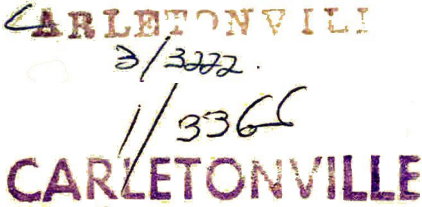 CARLETONVILL
3/3222.
1/3366
CARLETONVILLE